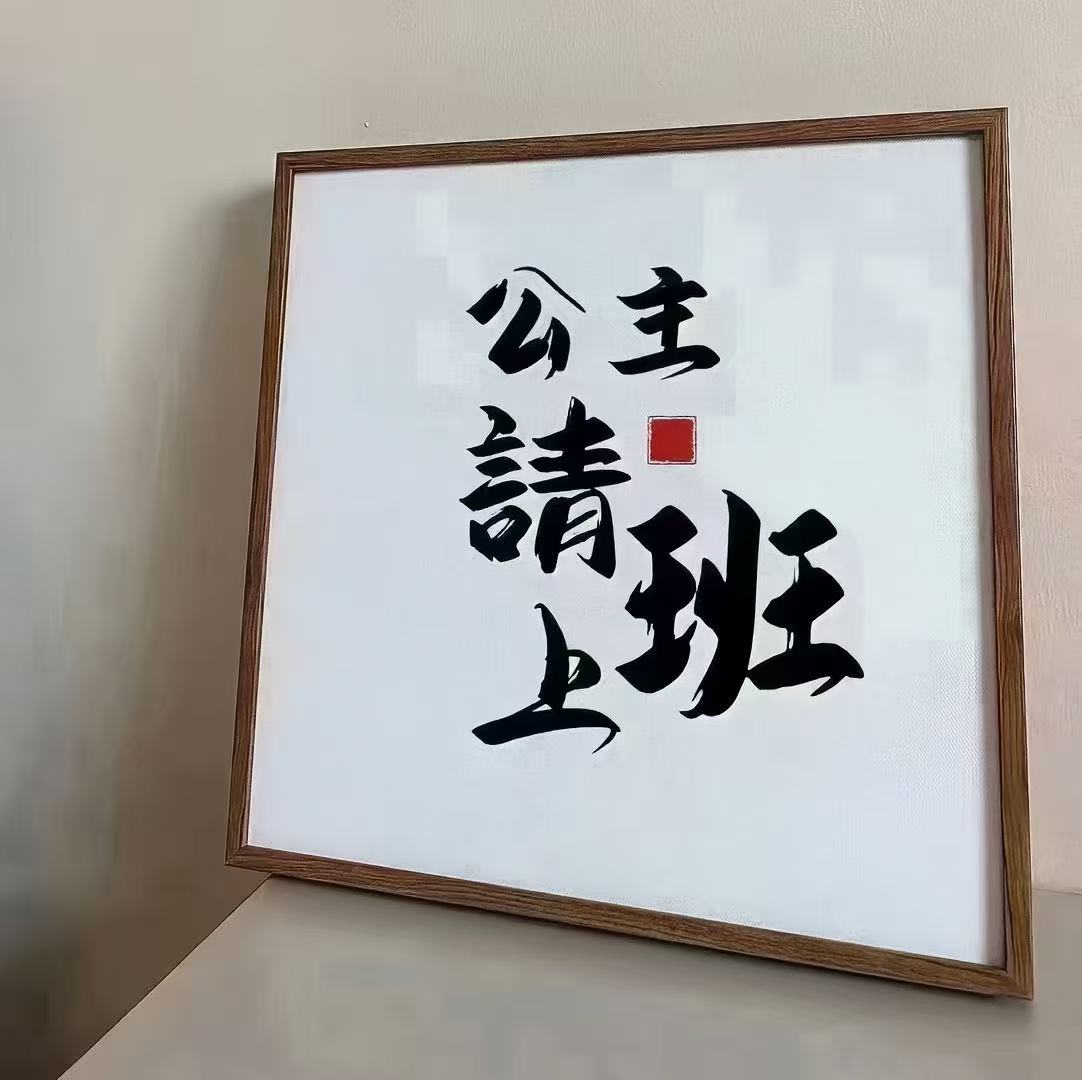 公主
請
上班